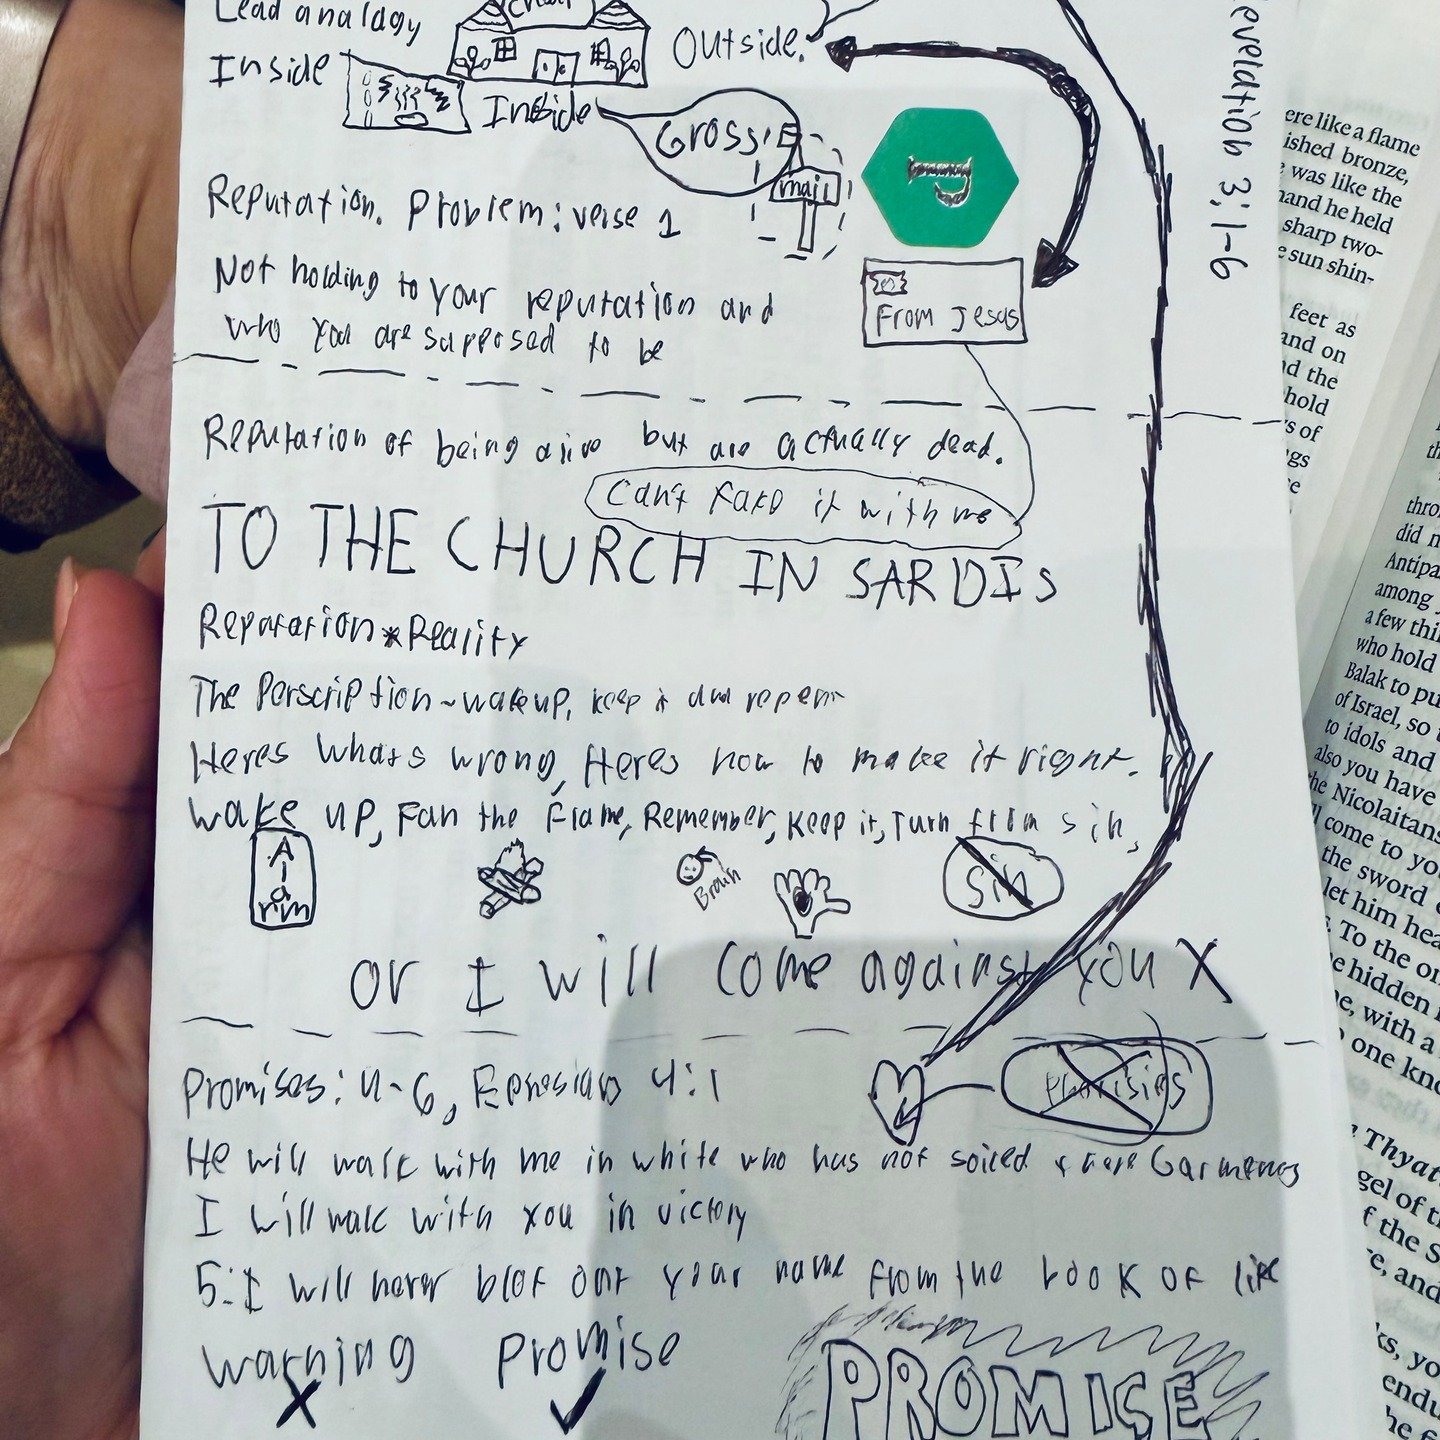 Lead analagy
Outside.
Inside
Inside
GROSSIE
mail
J
Revelation 3:1-6
Reputation. Problem: verse 1
From Jesus
Not holding to your reputation and
who you are supposed to be
Reputation of being alive but are actually dead.
Can't fake it with me
TO THE CHURCH IN SARDIS
Reputation*Reality
The Perscription ~ wake up, keep it and repent
Heres whats wrong, Heres how to make it right.
Wake up, Fan the flame, Remember, Keep it, Turn from sin,
Alarm
Brain
Sin
or I will come against you X
Promises: 4-6, Ephesians 4:1
Pharisies
He will walk with me in white who has not soiled Garments
I will walk with you in victory
5: I will never blot out your name from the book of life
Warning Promise
X ✓
PROMISE
ere like a flame
ished bronze,
was like the
hand he held
sharp two-
e sun shin-
feet as
and on
d the
hold
s of
ngs
did n
Antipa
among
a few thi
who hold
Balak to pu
of Israel, so
to idols and
also you have
the Nicolaitans
ll come to yo
the sword
let him hea
To the on
e hidden
e, with a
one kno
Thyat
gel of t
f the S
e, and
ks, yo
endu
he f